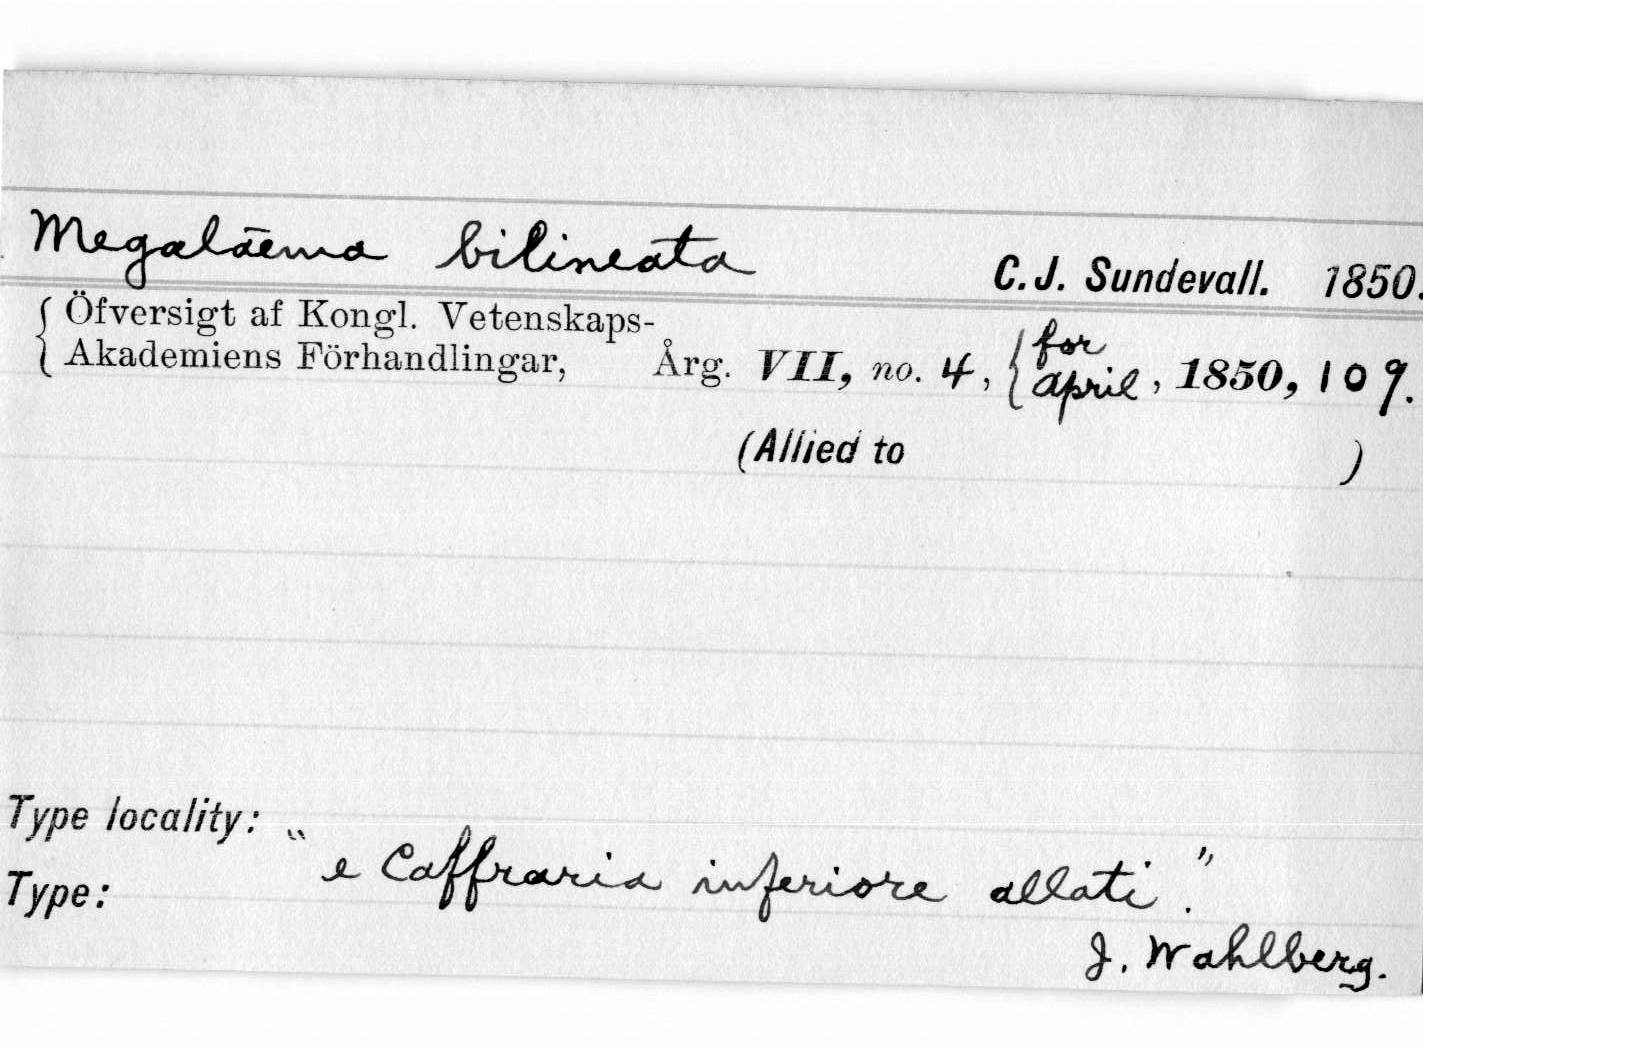 Megalaema bilineata C.J. Sundevall. 1850.
{ Öfversigt af Kongl. Vetenskaps-
{ Akademiens Förhandlingar, Årg. VII, no. 4, { for april, 1850, 109.
(Allied to )
Type locality: "e Caffraria inferiore allati."
Type:
J. Wahlberg.